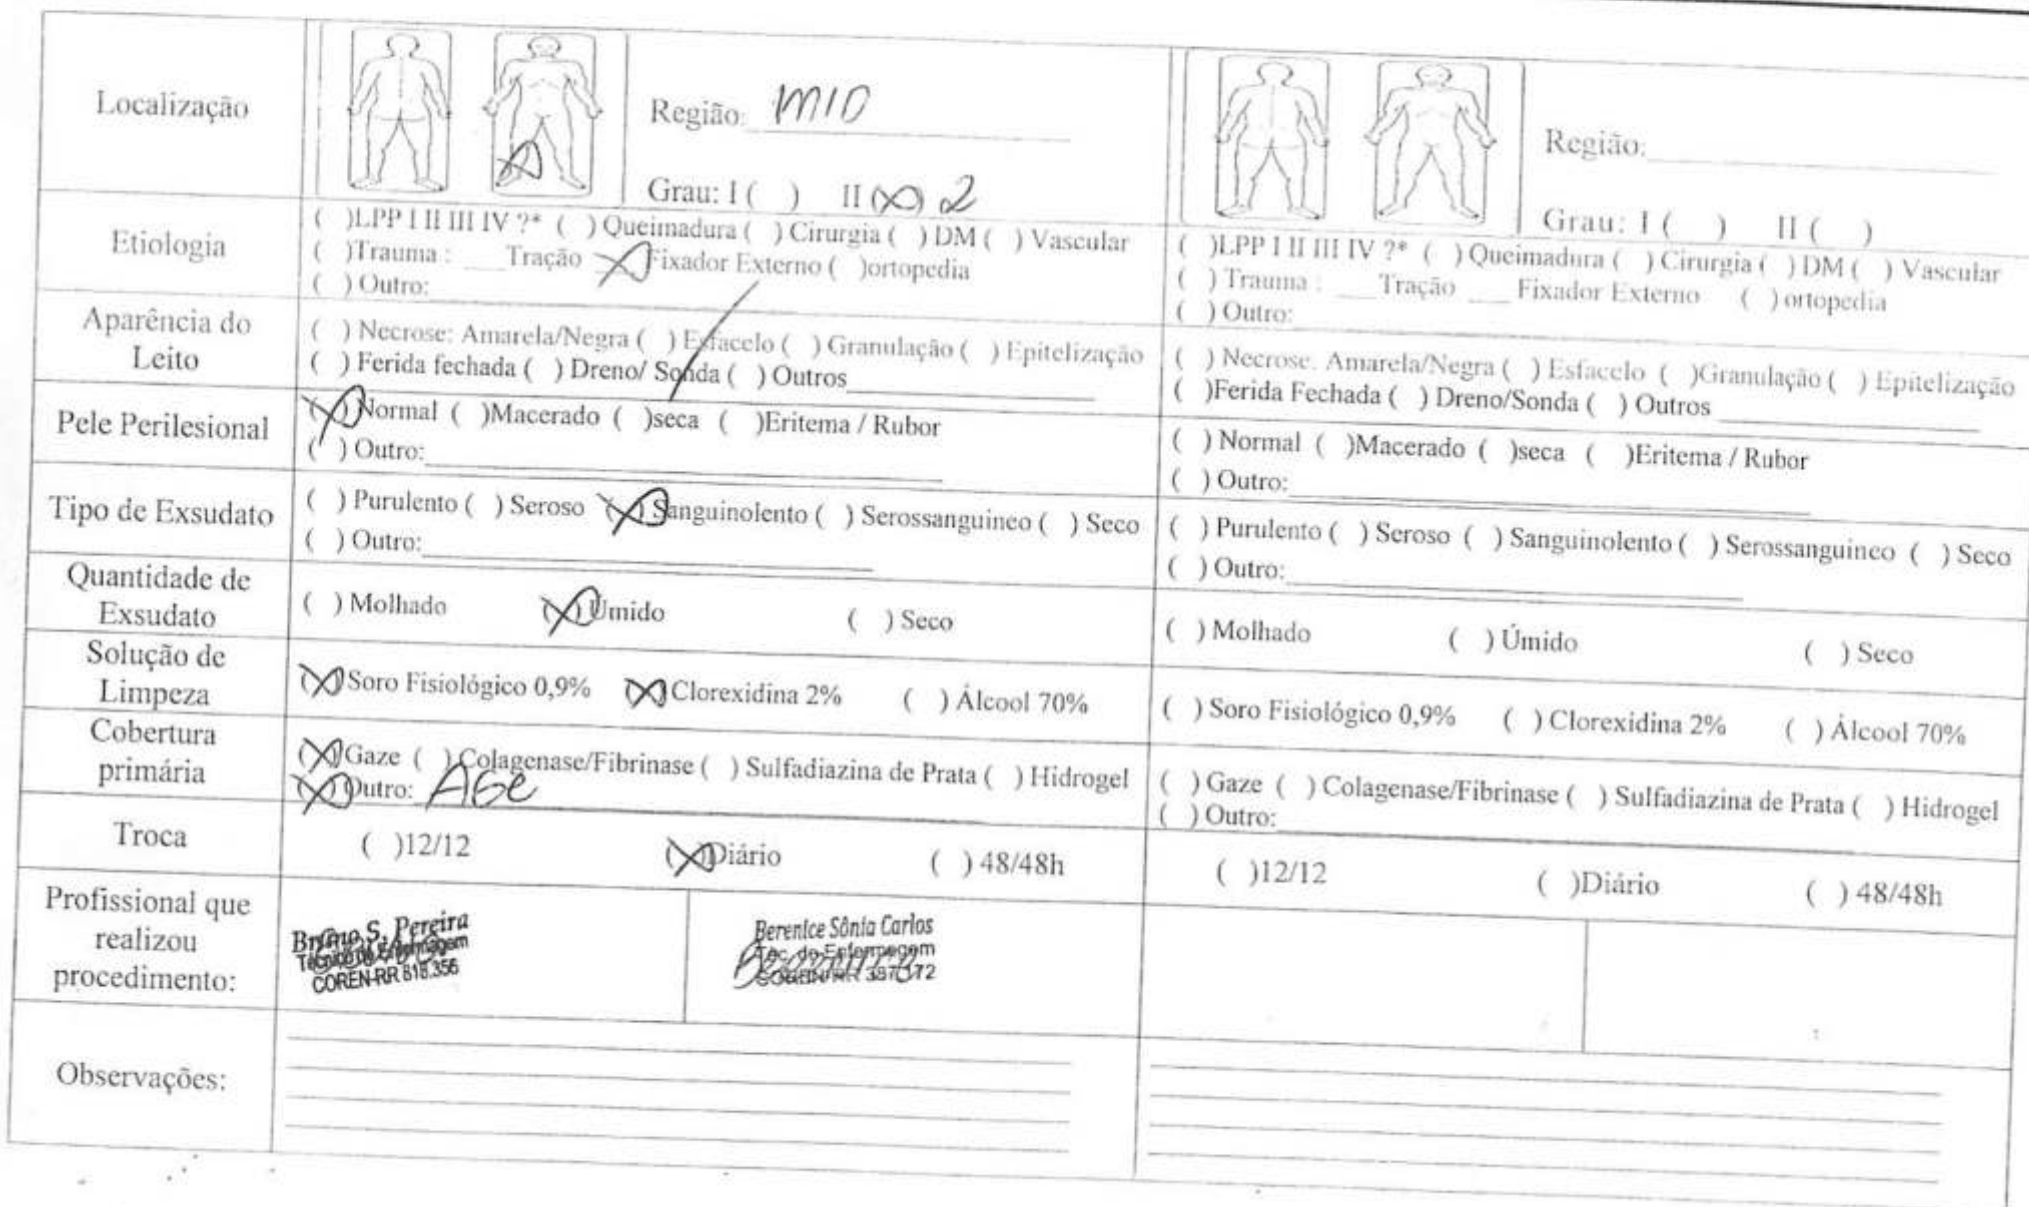 Localização
Região: MID
Grau: I ( ) II (X) 2
Região:
Grau: I ( ) II ( )
Etiologia
( )LPP I II III IV ?* ( ) Queimadura ( ) Cirurgia ( ) DM ( ) Vascular
( )Trauma : ___ Tração X Fixador Externo ( )ortopedia
( ) Outro:
( )LPP I II III IV ?* ( ) Queimadura ( ) Cirurgia ( ) DM ( ) Vascular
( ) Trauma : ___ Tração ___ Fixador Externo ( ) ortopedia
( ) Outro:
Aparência do
Leito
( ) Necrose: Amarela/Negra ( ) Esfacelo ( ) Granulação ( ) Epitelização
( ) Ferida fechada ( ) Dreno/ Sonda ( ) Outros
( ) Necrose. Amarela/Negra ( ) Esfacelo ( )Granulação ( ) Epitelização
( )Ferida Fechada ( ) Dreno/Sonda ( ) Outros
Pele Perilesional
(X) Normal ( )Macerado ( )seca ( )Eritema / Rubor
( ) Outro:
( ) Normal ( )Macerado ( )seca ( )Eritema / Rubor
( ) Outro:
Tipo de Exsudato
( ) Purulento ( ) Seroso (X) Sanguinolento ( ) Serossanguineo ( ) Seco
( ) Outro:
( ) Purulento ( ) Seroso ( ) Sanguinolento ( ) Serossanguineo ( ) Seco
( ) Outro:
Quantidade de
Exsudato
( ) Molhado (X) Úmido ( ) Seco
( ) Molhado ( ) Úmido ( ) Seco
Solução de
Limpeza
(X) Soro Fisiológico 0,9% (X) Clorexidina 2% ( ) Álcool 70%
( ) Soro Fisiológico 0,9% ( ) Clorexidina 2% ( ) Álcool 70%
Cobertura
primária
(X) Gaze ( ) Colagenase/Fibrinase ( ) Sulfadiazina de Prata ( ) Hidrogel
(X) Outro: AGE
( ) Gaze ( ) Colagenase/Fibrinase ( ) Sulfadiazina de Prata ( ) Hidrogel
( ) Outro:
Troca
( )12/12 (X)Diário ( ) 48/48h
( )12/12 ( )Diário ( ) 48/48h
Profissional que
realizou
procedimento:
Bruno S. Pereira
Técnico de Enfermagem
COREN-RR 818.356
Berenice Sônia Carlos
Téc. de Enfermagem
COREN/RR 387172
Observações: